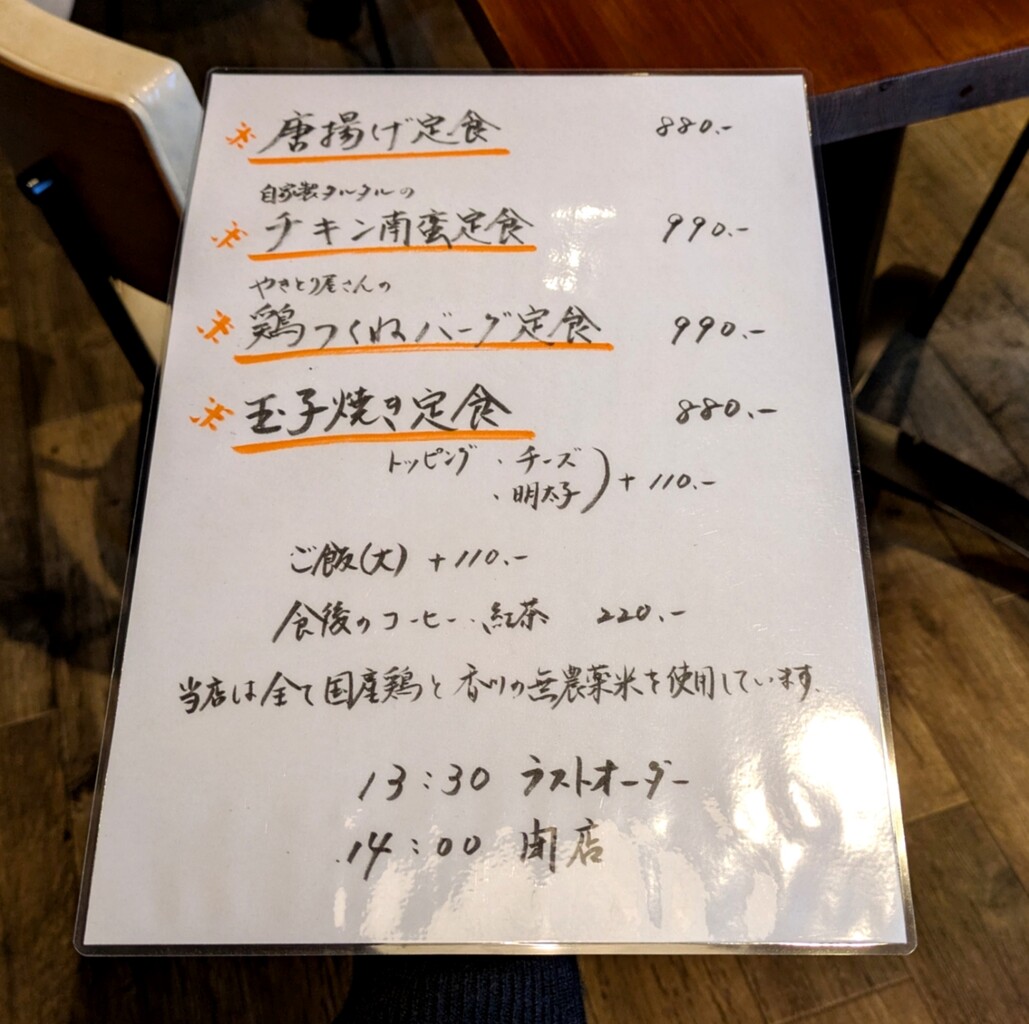 ※ 唐揚げ定食 880.-
自家製タルタルの
※ チキン南蛮定食 990.-
やきとり屋さんの
※ 鶏つくねバーグ定食 990.-
※ 玉子焼き定食 880.-
トッピング ・チーズ
・明太子 ) + 110.-
ご飯(大) + 110.-
食後のコーヒー・紅茶 220.-
当店は全て国産鶏と香川の無農薬米を使用しています.
13:30 ラストオーダー
14:00 閉店